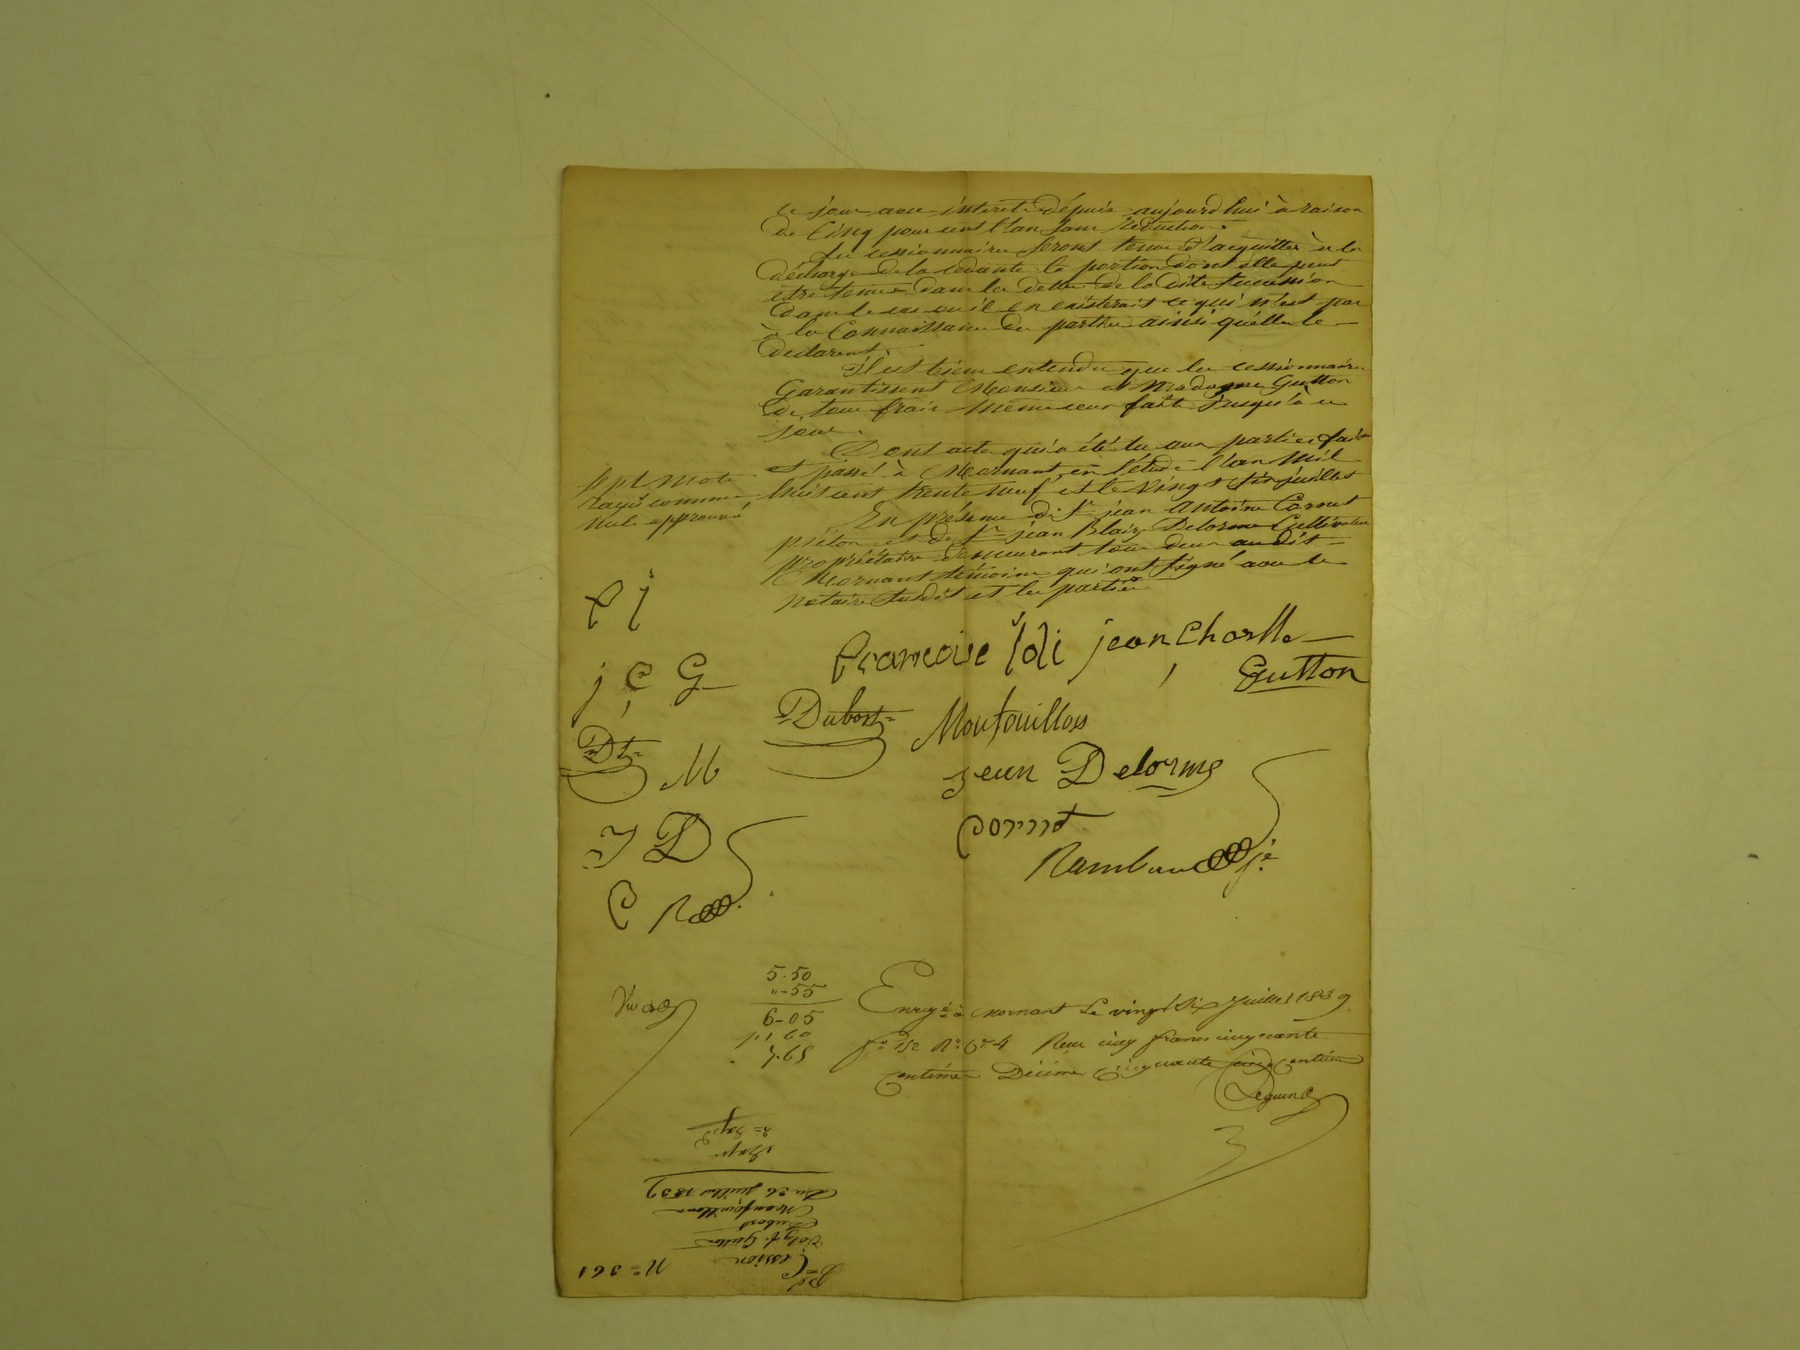 ce jour avec interets dépuis aujourd'hui à raison
de Cinq pour cent l'an sans réduction.
Les cessionnaires seront tenus d'acquitter à la
décharge de la cédante la portion dont elle peut
être tenue dans les dettes de la dite succession
dans le cas où il en existerait ce qui n'est pas
à la Connaissance des parties ainsi qu'elles le
declarent.
Il est bien entendu que les cessionnaires
Garantissent Monsieur et Madame Gutton
de tous frais même ceux faits jusqu'à ce
jour.
Dont acte qui a été lu aux parties fait
et passé à Mornant en l'étude l'an mil
huit cent trente neuf et le vingt six juillet
En présence de Sr jean Antoine Cornet
piéton et de Sr jean Blaize Delorme Cultivateur
propriétaire demeurant tous deux au dit
Mornant témoins qui ont signé avec le
notaire susdit et les parties
sept mots
rayés comme
nuls approuvé
f j
j C G
Dt M
J D
C R
francoise joli jean Charlle
Gutton
Dubost Monfouilloux
jean Delorme
Cornet
Rambaud je
5.50
"-55
6-05
1,60
7.65
Enregé à mornant Le vingt Six Juillet 1839
fo 152 No Reçu cinq francs cinquante
Centimes Décime Cinquante cinq Centimes
No 361
Cession
Dubost
Monfouilloux
Du 26 juillet 1839